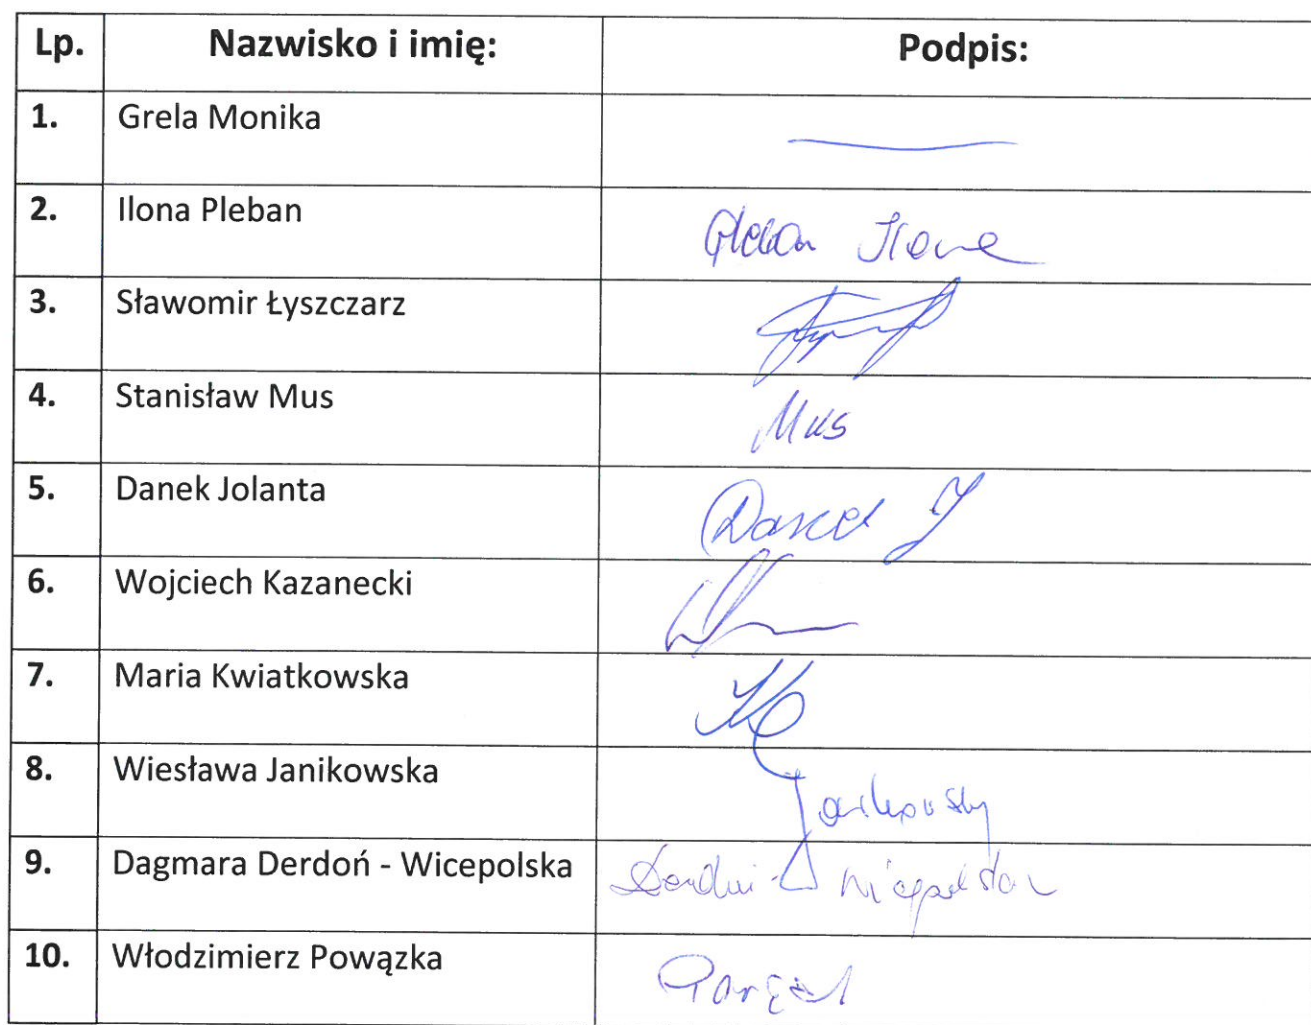 Lp. Nazwisko i imię: Podpis:
1. Grela Monika
2. Ilona Pleban Pleban Ilona
3. Sławomir Łyszczarz
4. Stanisław Mus Mus
5. Danek Jolanta Danek J
6. Wojciech Kazanecki
7. Maria Kwiatkowska
8. Wiesława Janikowska
9. Dagmara Derdoń - Wicepolska
10. Włodzimierz Powązka